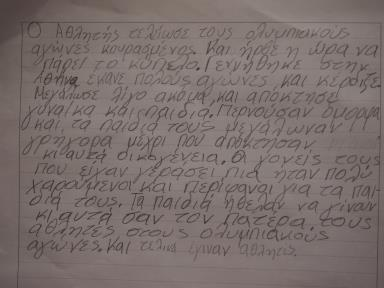 Ο Αθλητής τελίωσε τους ολυμπιακούς
αγώνες κουρασμένος. Και ήρθε η ώρα να
πάρει το κύπελο. Γεννήθηκε στην
Αθήνα έκανε πολούς αγώνες και κέρδιζε
Μεγάλωσε λίγο ακόμα, και απόκτησε
γυναίκα και παιδιά. Περνούσαν όμορφα
και τα παιδιά τους μεγάλωναν
γρήγορα μέχρι που απόκτησαν
κι αυτά οικογένεια. Οι γονείς τους
που είχαν γεράσει πια ήταν πολύ
χαρούμενοι και περίφανοι για τα παι-
διά τους. Τα παιδιά ήθελαν να γίνουν
κι αυτά σαν τον πατέρα τους
αθλητές στους ολυμπιακούς
αγώνες. Και τελικά έγιναν αθλητές.